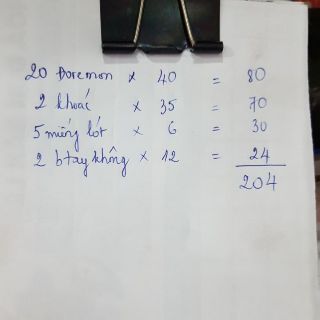 20 Doremon x 40 = 80
2 khoác x 35 = 70
5 miếng lót x 6 = 30
2 btay không x 12 = 24
204